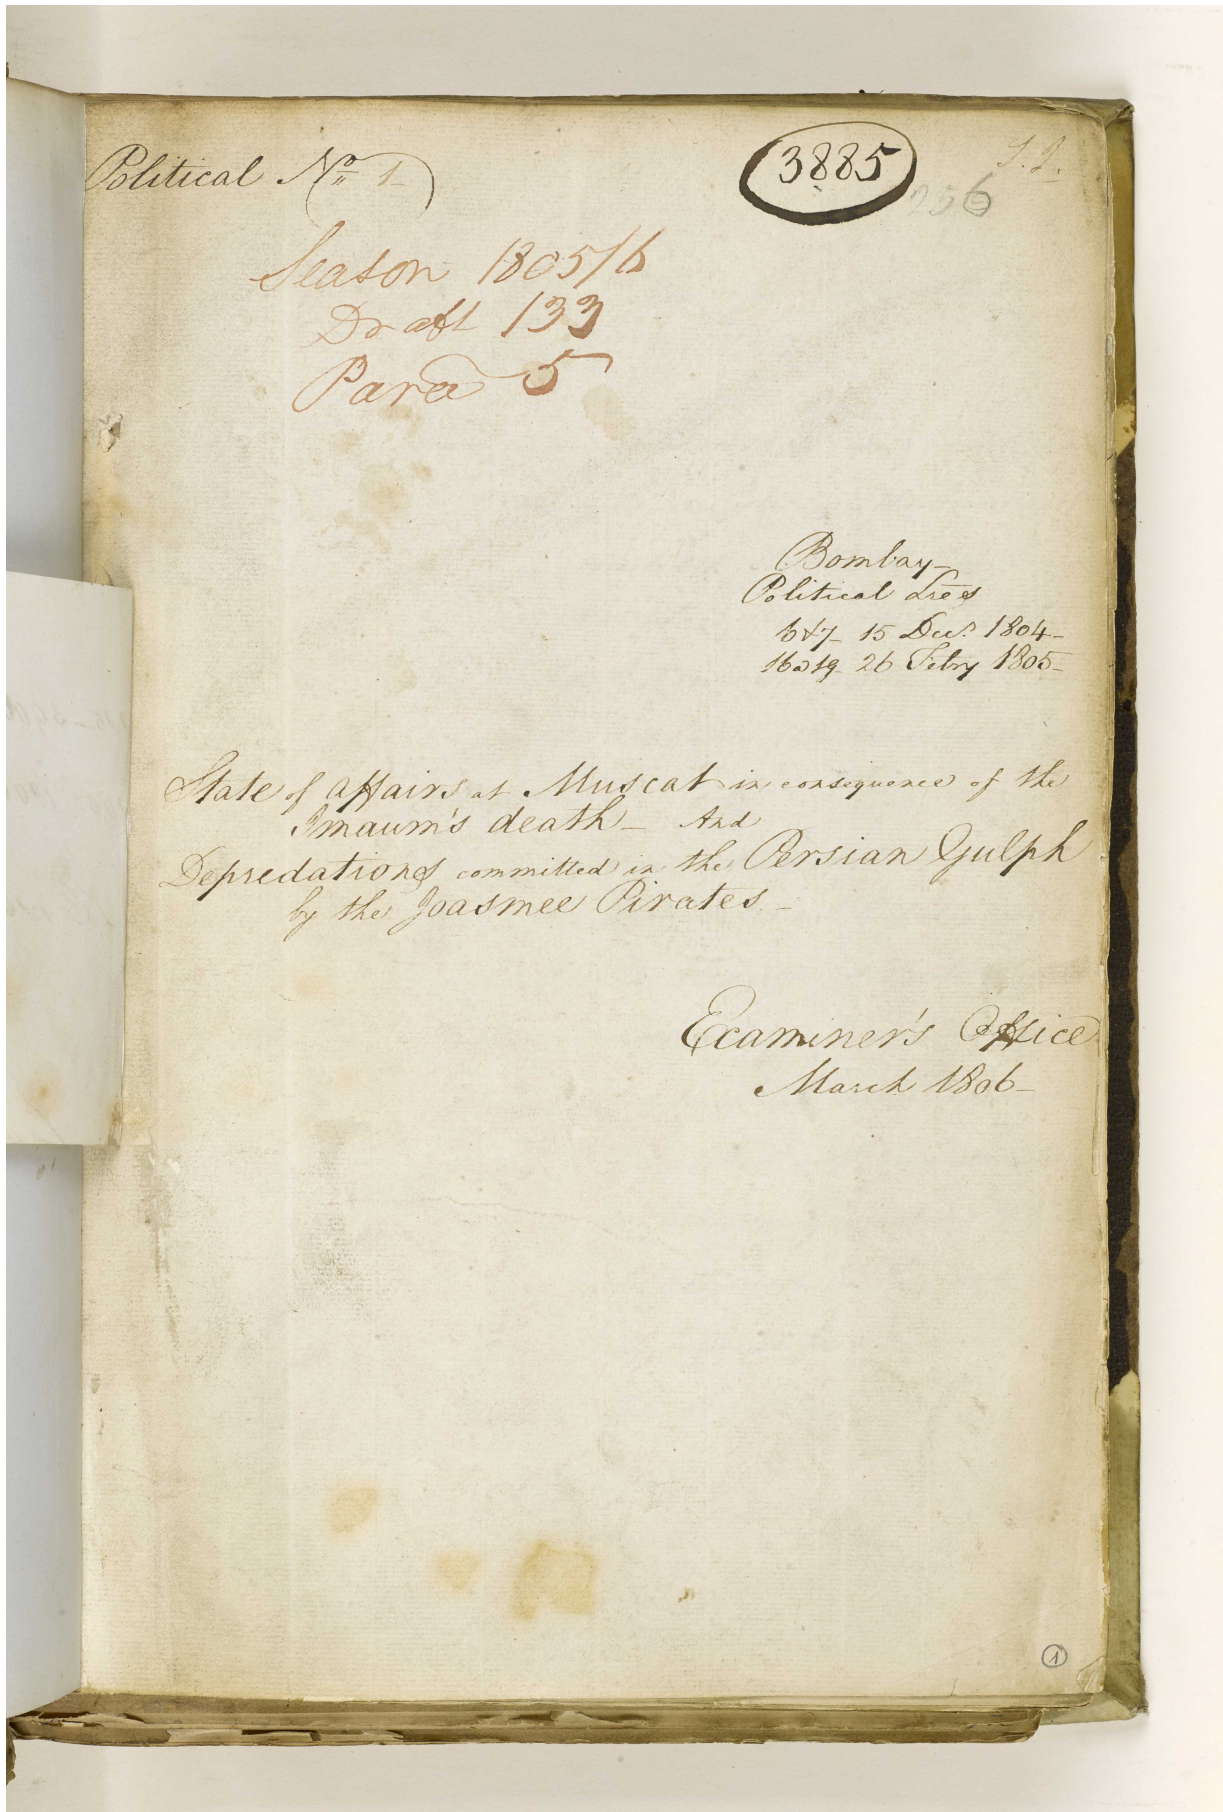 Political No. 1
3885
256
Season 1805/6
Draft 133
Para 5
Bombay
Political Lres
6 & 7 15 Decr. 1804
16 a 19 26 Febry 1805
State of affairs at Muscat in consequence of the
Imaum's death And
Depredations committed in the Persian Gulph
by the Joasmee Pirates
Examiner's Office
March 1806
1